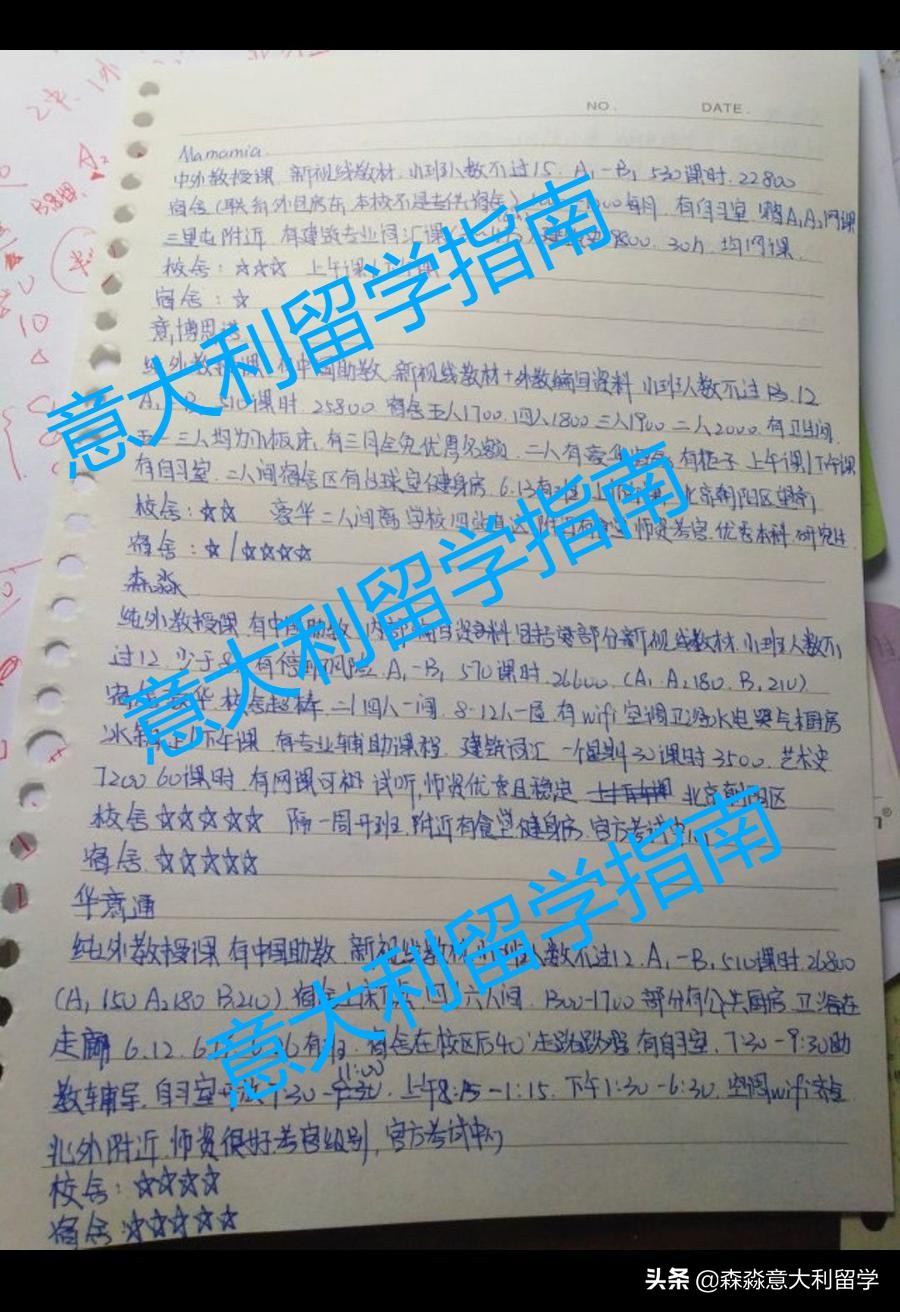 NO. DATE.
Mamamia
中外教授课 新视线教材 小班人数不过15. A1-B1 530课时. 22800
宿舍(联系外租房在,本校不是提供宿舍) 每月. 有自习室 赠A1A2网课
三里屯附近 有建筑专业词汇课 9800. 30h. 均网课.
校舍: ☆☆☆ 上午课
宿舍: ☆
意博思诺
纯外教授课 有中国助教 新视线教材+外教编写资料 小班人数不过 12
A1 510课时. 25800 宿舍五人1700. 四人1800 三人1900 二人2000. 有卫生间.
三人均为木板床. 有三月全免优惠名额. 二人有豪华宿舍 有柜子 上午课|下午课
有自习室. 二人间宿舍区有台球室健身房. 6.13 北京朝阳区望京
校舍: ☆☆ 豪华二人间离学校四站直达 师资考官. 优秀本科. 研究生
宿舍: ☆/☆☆☆☆
森淼
纯外教授课. 有中国助教 内部编写资料 部分新视线教材. 小班人数不
过12. 少于8 有停班风险. A1-B1 570课时. 26600. (A1. A2 180. B1 210)
宿舍豪华 校舍超棒. 二|四人一间. 8-12人一屋 有wifi空调卫浴水电器气厨房
冰箱 上|下午课 有专业辅助课程. 建筑词汇 一个星期30课时3500. 艺术史
7200 60课时. 有网课可 试听. 师资优秀且稳定 北京朝阳区
校舍☆☆☆☆☆ 隔一周开班. 附近有食堂健身房. 官方考试中心
宿舍. ☆☆☆☆☆
华意通
纯外教授课 有中国助教 新视线教材 小班人数不过12. A1-B1 510课时. 26800
(A1 150 A2 180 B1 210) 宿舍 四|六人间. 1300-1700 部分有公共厨房 卫浴在
走廊 6.12. 有班. 宿舍在校区后40 走路路程. 有自习室. 7:30-9:30助
教辅导. 自习室开放7:30-11:00. 上午8:15-1:15. 下午1:30-6:30. 空调wifi齐全
北外附近. 师资很好考官级别, 官方考试中心
校舍: ☆☆☆☆
宿舍: ☆☆☆☆☆
意大利留学指南
意大利留学指南
意大利留学指南
头条 @森淼意大利留学